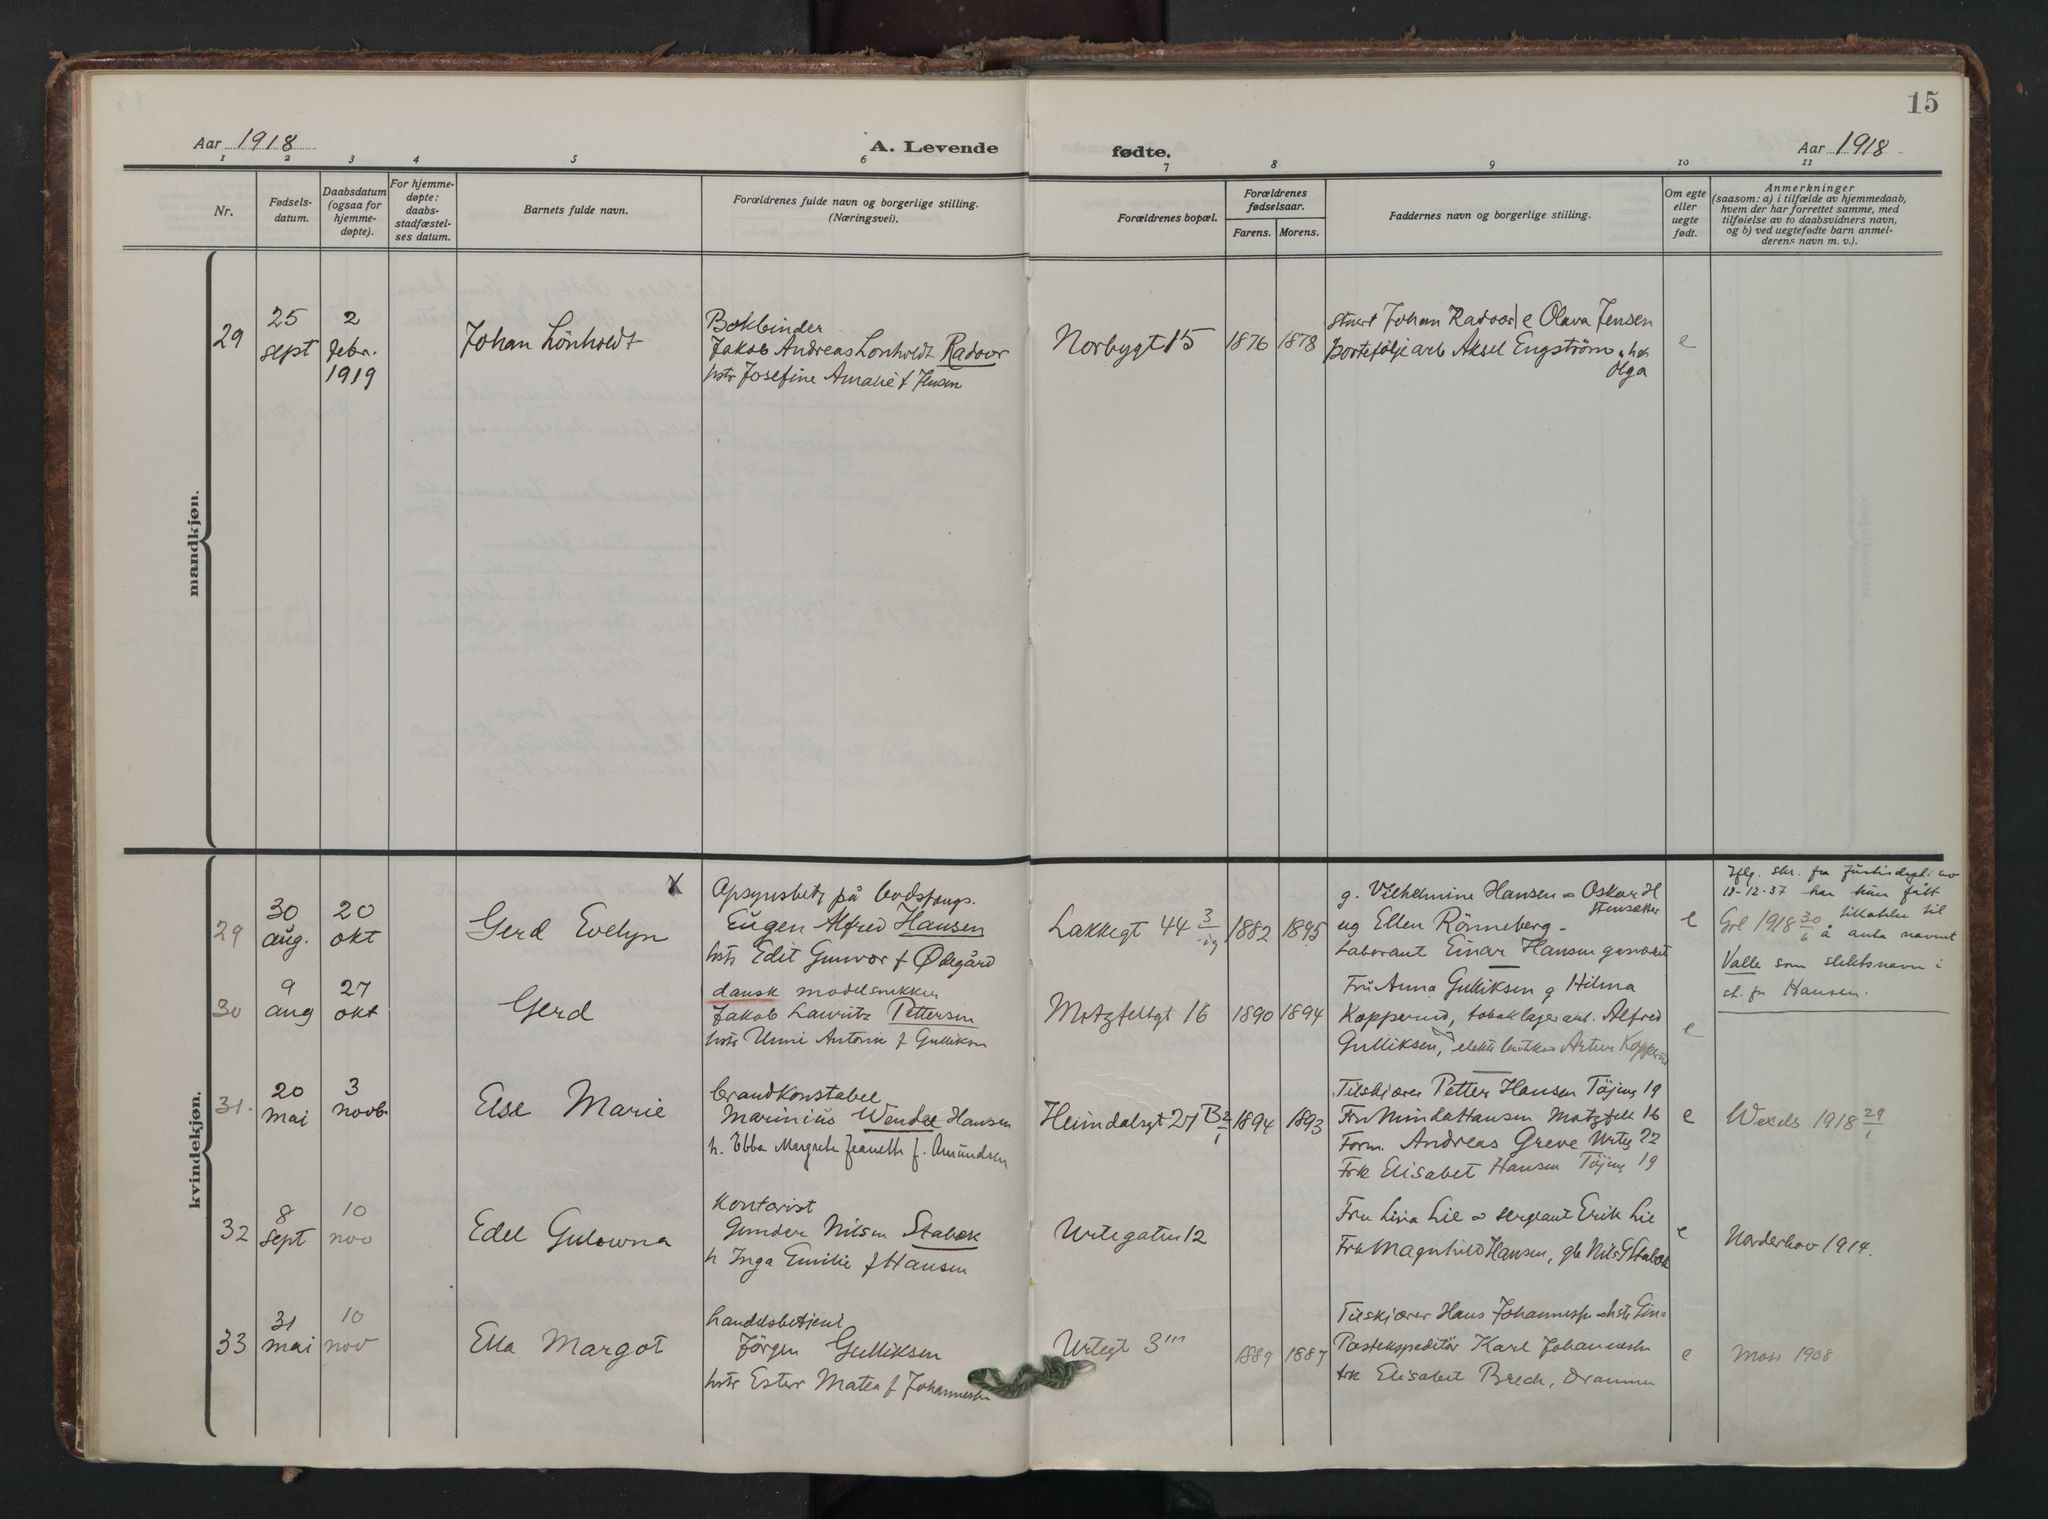 15
Aar 1918
A. Levende
fødte.
Aar 1918
1 2 3 4 5 6 7 8 9 10 11
Nr.
Fødsels-
datum.
Daabsdatum
(ogsaa for
hjemme-
døpte).
For hjemme-
døpte:
daabs-
stadfæstel-
ses datum.
Barnets fulde navn.
Forældrenes fulde navn og borgerlige stilling.
(Næringsvei).
Forældrenes bopæl.
Forældrenes
fødselsaar.
Farens. Morens.
Faddernes navn og borgerlige stilling.
Om egte
eller
uegte
født.
Anmerkninger
(saasom: a) i tilfælde av hjemmedaab,
hvem der har forrettet samme, med
tilføielse av to daabsvidners navn,
og b) ved uegtefødte barn anmel-
derens navn m. v.).
mandkjøn.
29
25
sept
2
febr.
1919
Johan Lönholdt
Bokbinder
Jakob Andreas Lonholdt Radoor
hstr Josefine Amalie f Jensen
Norbygt 15
1876
1878
Johan Radoor Olava Jensen
portefölje arb Aksel Engström
Olga
e
kvindekjøn.
29
30
aug.
20
okt
Gerd Evelyn
X
Opsynsbetj på bodsfængs.
Eugen Alfred Hansen
hstr Edit Gunvor f Ødegård
Lakkegt 44 3
1882
1895
g. Vilhelmine Hansen Oskar H
Stensæter
ug Ellen Rönneberg
Laborant Einar Hansen
e
Iflg. skr. fra Justisdept. av
18-12-37 har hun fått
Grl 1918 30/6 tillatelse til
å anta navnet
Valle som slektsnavn i
st. for Hansen.
30
9
aug
27
okt
Gerd
dansk modelsnekker
Jakob Lauritz Pettersen
hstr Unni Antonie f Gulliksen
Motzfeltsgt 16
1890
1894
Fru Anna Gulliksen g Hilma
Kopperud, tobaklagerarb. Alfred
Gulliksen, Artur Kopperud
e
31.
20
mai
3
novb.
Else Marie
brandkonstabel
Marinius Wendel Hansen
h. Ebba Margrete Jeanette f. Amundsen
Heimdalsgt 27 B 2/1
1894
1893
Tilskjærer Petter Hansen Töjeng 19
Fru Minda Hansen Motzfelt 16
Form. Andreas Greve Urteg 22
Frk Elisabet Hansen Töjeng 19
e
Wexels 1918 29/1
32
8
sept
10
nov
Edel Gulowna
Kontorist
Gunder Nilsen Stabæk
h Inga Emilie f Hansen
Urtegaten 12
Fru Lina Lie sergeant Erik Lie
Frk Magnhild Hansen, gb Nils G Stabæk
e
Norderhov 1914.
33
31
mai
10
nov
Ella Margot
handelsbetjent
Jörgen Gulliksen
hstr Ester Matea f Johannesen
Urtegt 3 III
1889
1887
Tilskjærer Hans Johannesen hstr Gina
Postekspeditör Karl Johannesen
frk Elisabet Brech, Drammen
e
Moss 1908